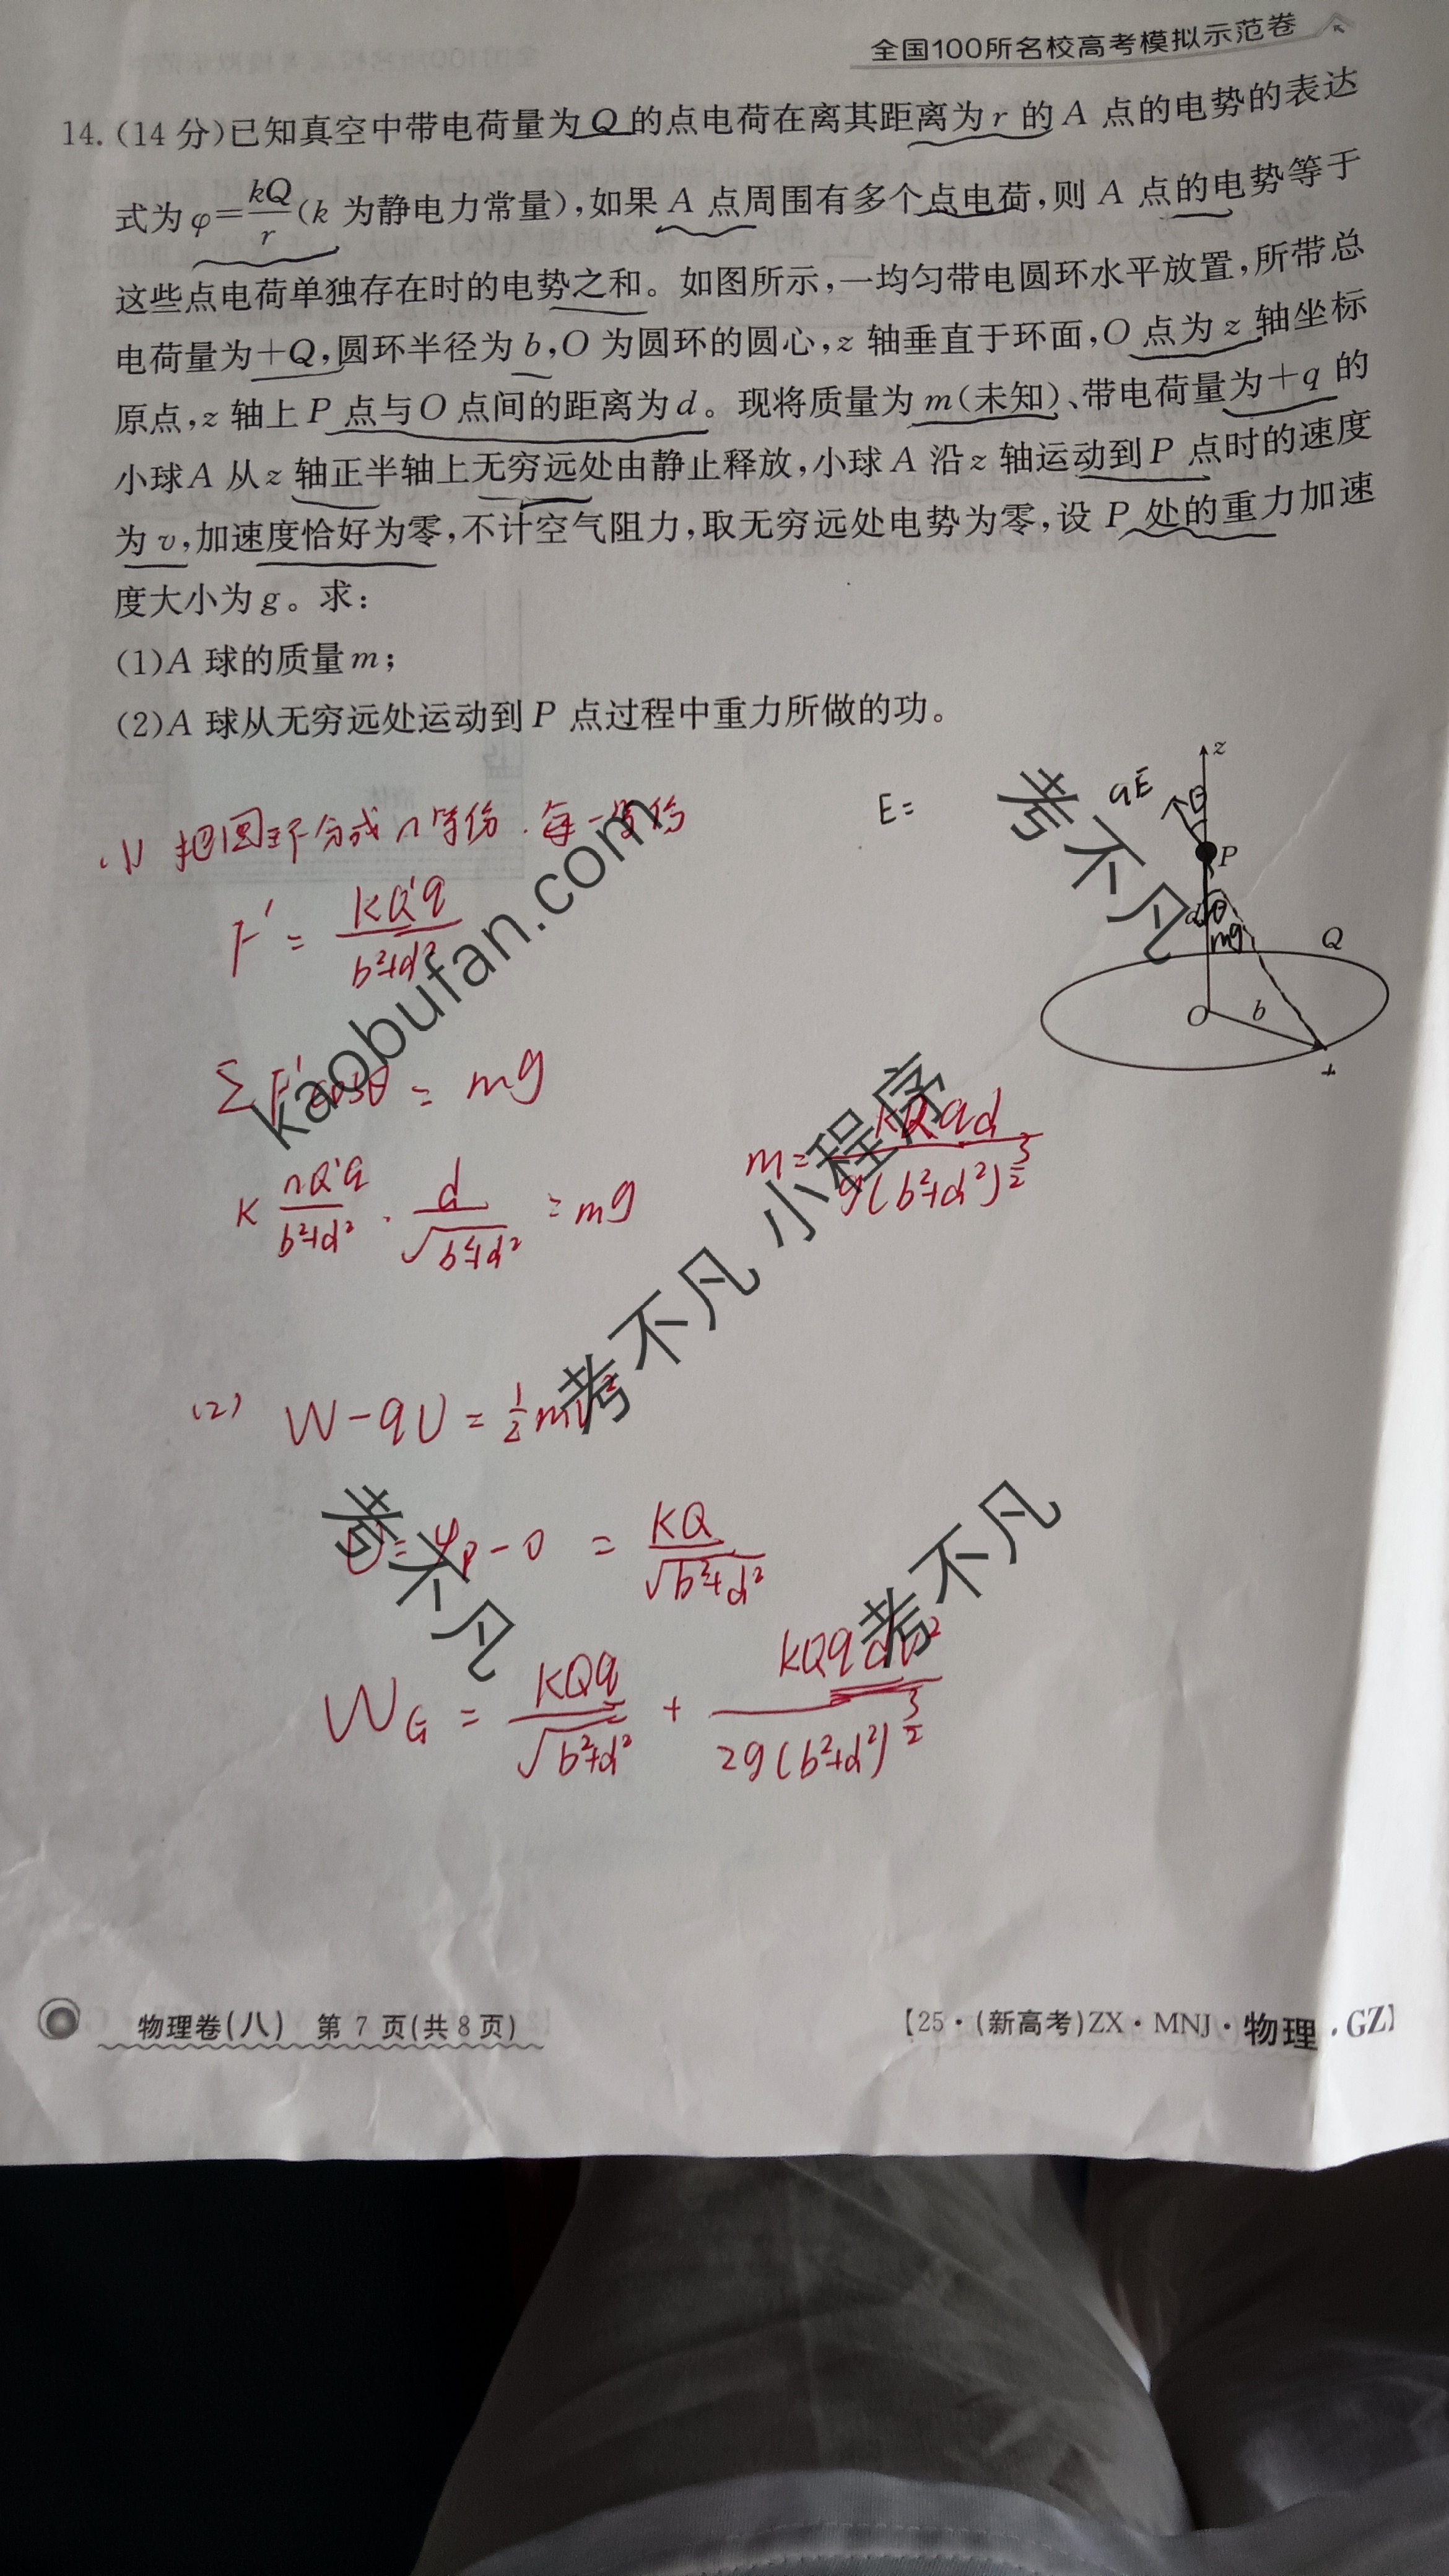 全国100所名校高考模拟示范卷
14.(14分)已知真空中带电荷量为Q的点电荷在离其距离为r的A点的电势的表达
式为φ=kQ/r(k为静电力常量),如果A点周围有多个点电荷,则A点的电势等于
这些点电荷单独存在时的电势之和。如图所示,一均匀带电圆环水平放置,所带总
电荷量为+Q,圆环半径为b,O为圆环的圆心,z轴垂直于环面,O点为z轴坐标
原点,z轴上P点与O点间的距离为d。现将质量为m(未知)、带电荷量为+q的
小球A从z轴正半轴上无穷远处由静止释放,小球A沿z轴运动到P点时的速度
为v,加速度恰好为零,不计空气阻力,取无穷远处电势为零,设P处的重力加速
度大小为g。求:
(1)A球的质量m;
(2)A球从无穷远处运动到P点过程中重力所做的功。
z
qE
θ
P
d
θ
mg
Q
O
b
+
E=
(1) 把圆环分成n等份.每一等份
F'=kQ'q/(b²+d²)
ΣF'cosθ=mg
k nQ'q/(b²+d²)·d/√(b²+d²)=mg
m=kQqd/g(b²+d²)^(3/2)
(2) W-qU=½mv²
U=φp-0=kQ/√(b²+d²)
W_G=kQq/√(b²+d²)+kQqdv²/2g(b²+d²)^(3/2)
考不凡
kaobufan.com
考不凡 小程序
考不凡
考不凡
物理卷(八) 第7页(共8页)
【25·(新高考)ZX·MNJ·物理·GZ】